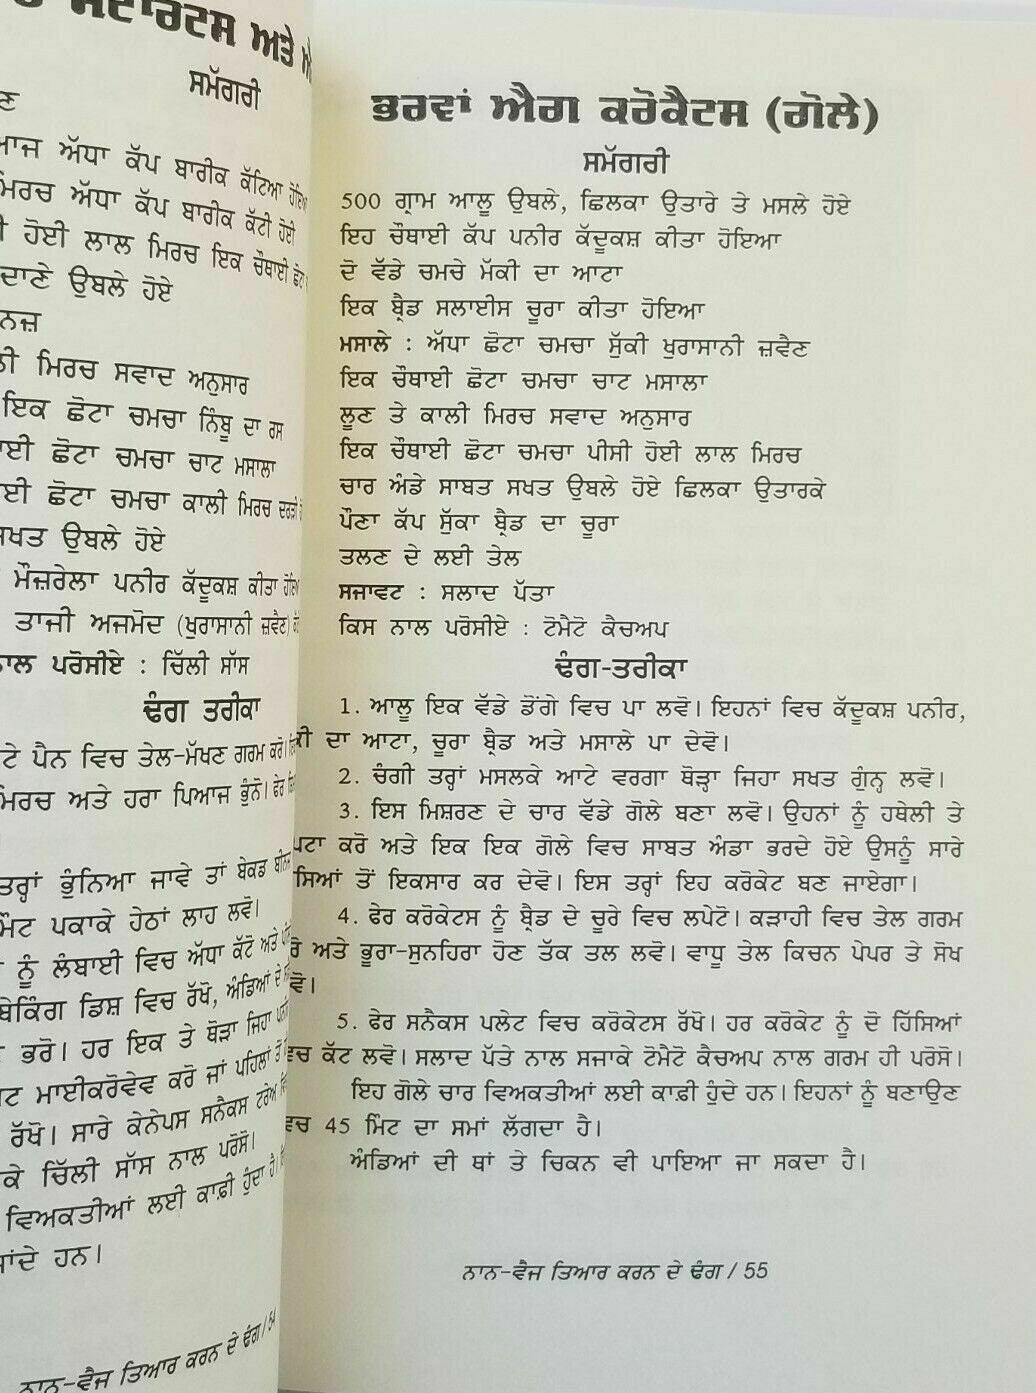 ਸਟਾਰਟਸ ਅਤੇ
ਸਮੱਗਰੀ
ਅੱਧਾ ਕੱਪ ਬਾਰੀਕ ਕੱਟਿਆ
ਮਿਰਚ ਅੱਧਾ ਕੱਪ ਬਾਰੀਕ ਕੱਟੀ ਹੋਈ
ਹੋਈ ਲਾਲ ਮਿਰਚ ਇਕ ਚੌਥਾਈ
ਦਾਣੇ ਉਬਲੇ ਹੋਏ
ਮਿਰਚ ਸਵਾਦ ਅਨੁਸਾਰ
ਇਕ ਛੋਟਾ ਚਮਚਾ ਨਿੰਬੂ ਦਾ ਰਸ
ਛੋਟਾ ਚਮਚਾ ਚਾਟ ਮਸਾਲਾ
ਛੋਟਾ ਚਮਚਾ ਕਾਲੀ ਮਿਰਚ ਦਰੜੀ
ਉਬਲੇ ਹੋਏ
ਮੌਜ਼ਰੇਲਾ ਪਨੀਰ ਕੱਦੂਕਸ਼ ਕੀਤਾ
ਤਾਜੀ ਅਜਮੋਦ (ਖੁਰਾਸਾਨੀ ਜ਼ਵੈਣ)
ਪਰੋਸੀਏ : ਚਿੱਲੀ ਸਾੱਸ
ਢੰਗ ਤਰੀਕਾ
ਪੈਨ ਵਿਚ ਤੇਲ-ਮੱਖਣ ਗਰਮ ਕਰੋ।
ਮਿਰਚ ਅਤੇ ਹਰਾ ਪਿਆਜ ਭੁੰਨੋ। ਫੇਰ
ਤਰ੍ਹਾਂ ਭੁੰਨਿਆ ਜਾਵੇ ਤਾਂ ਬੇਕਡ ਬੀਨਜ਼
ਪਕਾਕੇ ਹੇਠਾਂ ਲਾਹ ਲਵੋ।
ਨੂੰ ਲੰਬਾਈ ਵਿਚ ਅੱਧਾ ਕੱਟੋ ਅਤੇ
ਬੇਕਿੰਗ ਡਿਸ਼ ਵਿਚ ਰੱਖੋ, ਅੰਡਿਆਂ ਦੇ
ਭਰੋ। ਹਰ ਇਕ ਤੇ ਥੋੜਾ ਜਿਹਾ
ਮਾਈਕਰੋਵੇਵ ਕਰੋ ਜਾਂ ਪਹਿਲਾਂ ਤੋਂ
ਰੱਖੋ। ਸਾਰੇ ਕੇਨੇਪਸ ਸਨੈਕਸ ਟਰੇਅ
ਕੇ ਚਿੱਲੀ ਸਾੱਸ ਨਾਲ ਪਰੋਸੋ।
ਵਿਅਕਤੀਆਂ ਲਈ ਕਾਫ਼ੀ ਹੁੰਦਾ ਹੈ।
ਹਨ।
ਨਾਨ-ਵੈਜ ਤਿਆਰ ਕਰਨ ਦੇ ਢੰਗ / 54
ਭਰਵਾਂ ਐਗ ਕਰੋਕੈਟਸ (ਗੋਲੇ)
ਸਮੱਗਰੀ
500 ਗ੍ਰਾਮ ਆਲੂ ਉਬਲੇ, ਛਿਲਕਾ ਉਤਾਰੇ ਤੇ ਮਸਲੇ ਹੋਏ
ਇਹ ਚੌਥਾਈ ਕੱਪ ਪਨੀਰ ਕੱਦੂਕਸ਼ ਕੀਤਾ ਹੋਇਆ
ਦੋ ਵੱਡੇ ਚਮਚੇ ਮੱਕੀ ਦਾ ਆਟਾ
ਇਕ ਬ੍ਰੈਡ ਸਲਾਈਸ ਚੂਰਾ ਕੀਤਾ ਹੋਇਆ
ਮਸਾਲੇ : ਅੱਧਾ ਛੋਟਾ ਚਮਚਾ ਸੁੱਕੀ ਖੁਰਾਸਾਨੀ ਜ਼ਵੈਣ
ਇਕ ਚੌਥਾਈ ਛੋਟਾ ਚਮਚਾ ਚਾਟ ਮਸਾਲਾ
ਲੂਣ ਤੇ ਕਾਲੀ ਮਿਰਚ ਸਵਾਦ ਅਨੁਸਾਰ
ਇਕ ਚੌਥਾਈ ਛੋਟਾ ਚਮਚਾ ਪੀਸੀ ਹੋਈ ਲਾਲ ਮਿਰਚ
ਚਾਰ ਅੰਡੇ ਸਾਬਤ ਸਖਤ ਉਬਲੇ ਹੋਏ ਛਿਲਕਾ ਉਤਾਰਕੇ
ਪੌਣਾ ਕੱਪ ਸੁੱਕਾ ਬ੍ਰੈਡ ਦਾ ਚੂਰਾ
ਤਲਣ ਦੇ ਲਈ ਤੇਲ
ਸਜਾਵਟ : ਸਲਾਦ ਪੱਤਾ
ਕਿਸ ਨਾਲ ਪਰੋਸੀਏ : ਟੋਮੈਟੋ ਕੈਚਅਪ
ਢੰਗ-ਤਰੀਕਾ
1. ਆਲੂ ਇਕ ਵੱਡੇ ਡੋਂਗੇ ਵਿਚ ਪਾ ਲਵੋ। ਇਹਨਾਂ ਵਿਚ ਕੱਦੂਕਸ਼ ਪਨੀਰ,
ਦਾ ਆਟਾ, ਚੂਰਾ ਬ੍ਰੈਡ ਅਤੇ ਮਸਾਲੇ ਪਾ ਦੇਵੋ।
2. ਚੰਗੀ ਤਰ੍ਹਾਂ ਮਸਲਕੇ ਆਟੇ ਵਰਗਾ ਥੋੜ੍ਹਾ ਜਿਹਾ ਸਖਤ ਗੁੰਨ੍ਹ ਲਵੋ।
3. ਇਸ ਮਿਸ਼ਰਣ ਦੇ ਚਾਰ ਵੱਡੇ ਗੋਲੇ ਬਣਾ ਲਵੋ। ਉਹਨਾਂ ਨੂੰ ਹਥੇਲੀ ਤੇ
ਕਰੋ ਅਤੇ ਇਕ ਇਕ ਗੋਲੇ ਵਿਚ ਸਾਬਤ ਅੰਡਾ ਭਰਦੇ ਹੋਏ ਉਸਨੂੰ ਸਾਰੇ
ਤੋਂ ਇਕਸਾਰ ਕਰ ਦੇਵੋ। ਇਸ ਤਰ੍ਹਾਂ ਇਹ ਕਰੋਕੇਟ ਬਣ ਜਾਏਗਾ।
4. ਫੇਰ ਕਰੋਕੇਟਸ ਨੂੰ ਬ੍ਰੈਡ ਦੇ ਚੂਰੇ ਵਿਚ ਲਪੇਟੋ। ਕੜਾਹੀ ਵਿਚ ਤੇਲ ਗਰਮ
ਅਤੇ ਭੂਰਾ-ਸੁਨਹਿਰਾ ਹੋਣ ਤੱਕ ਤਲ ਲਵੋ। ਵਾਧੂ ਤੇਲ ਕਿਚਨ ਪੇਪਰ ਤੇ ਸੋਖ
ਵੋ।
5. ਫੇਰ ਸਨੈਕਸ ਪਲੇਟ ਵਿਚ ਕਰੋਕੇਟਸ ਰੱਖੋ। ਹਰ ਕਰੋਕੇਟ ਨੂੰ ਦੋ ਹਿੱਸਿਆਂ
ਕੱਟ ਲਵੋ। ਸਲਾਦ ਪੱਤੇ ਨਾਲ ਸਜਾਕੇ ਟੋਮੈਟੋ ਕੈਚਅਪ ਨਾਲ ਗਰਮ ਹੀ ਪਰੋਸੋ।
ਇਹ ਗੋਲੇ ਚਾਰ ਵਿਅਕਤੀਆਂ ਲਈ ਕਾਫ਼ੀ ਹੁੰਦੇ ਹਨ। ਇਹਨਾਂ ਨੂੰ ਬਣਾਉਣ
45 ਮਿੰਟ ਦਾ ਸਮਾਂ ਲੱਗਦਾ ਹੈ।
ਅੰਡਿਆਂ ਦੀ ਥਾਂ ਤੇ ਚਿਕਨ ਵੀ ਪਾਇਆ ਜਾ ਸਕਦਾ ਹੈ।
ਨਾਨ-ਵੈਜ ਤਿਆਰ ਕਰਨ ਦੇ ਢੰਗ / 55